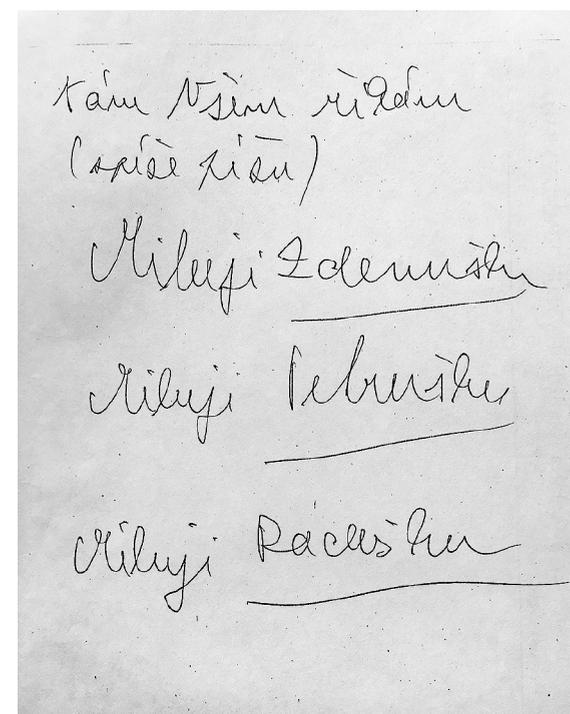 Vám Všem říkám
(spíše píšu)
Miluji Zdenušku
Miluji
Miluji Ráchušku